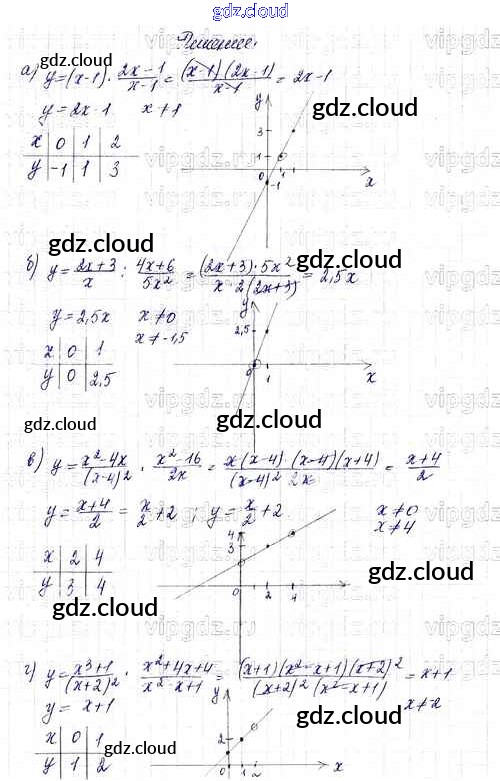 gdz.cloud
Решение.
а) y=(x-1)·(2x-1)/(x-1)=((x-1)(2x-1))/(x-1)=2x-1
y=2x-1 x≠1
x 0 1 2
y -1 1 3
y 3 1 0 1 -1 x
gdz.cloud
gdz.cloud
б) y=(2x+3)/x : (4x+6)/(5x²)=((2x+3)·5x²)/(x·2(2x+3))=2,5x
gdz.cloud
y=2,5x x≠0
x≠-1,5
x 0 1
y 0 2,5
y 2,5 0 1 x
gdz.cloud
gdz.cloud
в) y=(x²-4x)/(x-4)²·(x²-16)/(2x)=(x(x-4)(x-4)(x+4))/((x-4)²2x)=(x+4)/2
y=(x+4)/2=x/2+2, y=x/2+2. x≠0
x≠4
x 2 4
y 3 4
4 3 0 2 4 x
gdz.cloud
gdz.cloud
г) y=(x³+1)/(x+2)²·(x²+4x+4)/(x²-x+1)=((x+1)(x²-x+1)(x+2)²)/((x+2)²(x²-x+1))=x+1
y=x+1 x≠2
x 0 1
y 1 2
y 2 0 1 2 x
gdz.cloud
gdz.cloud